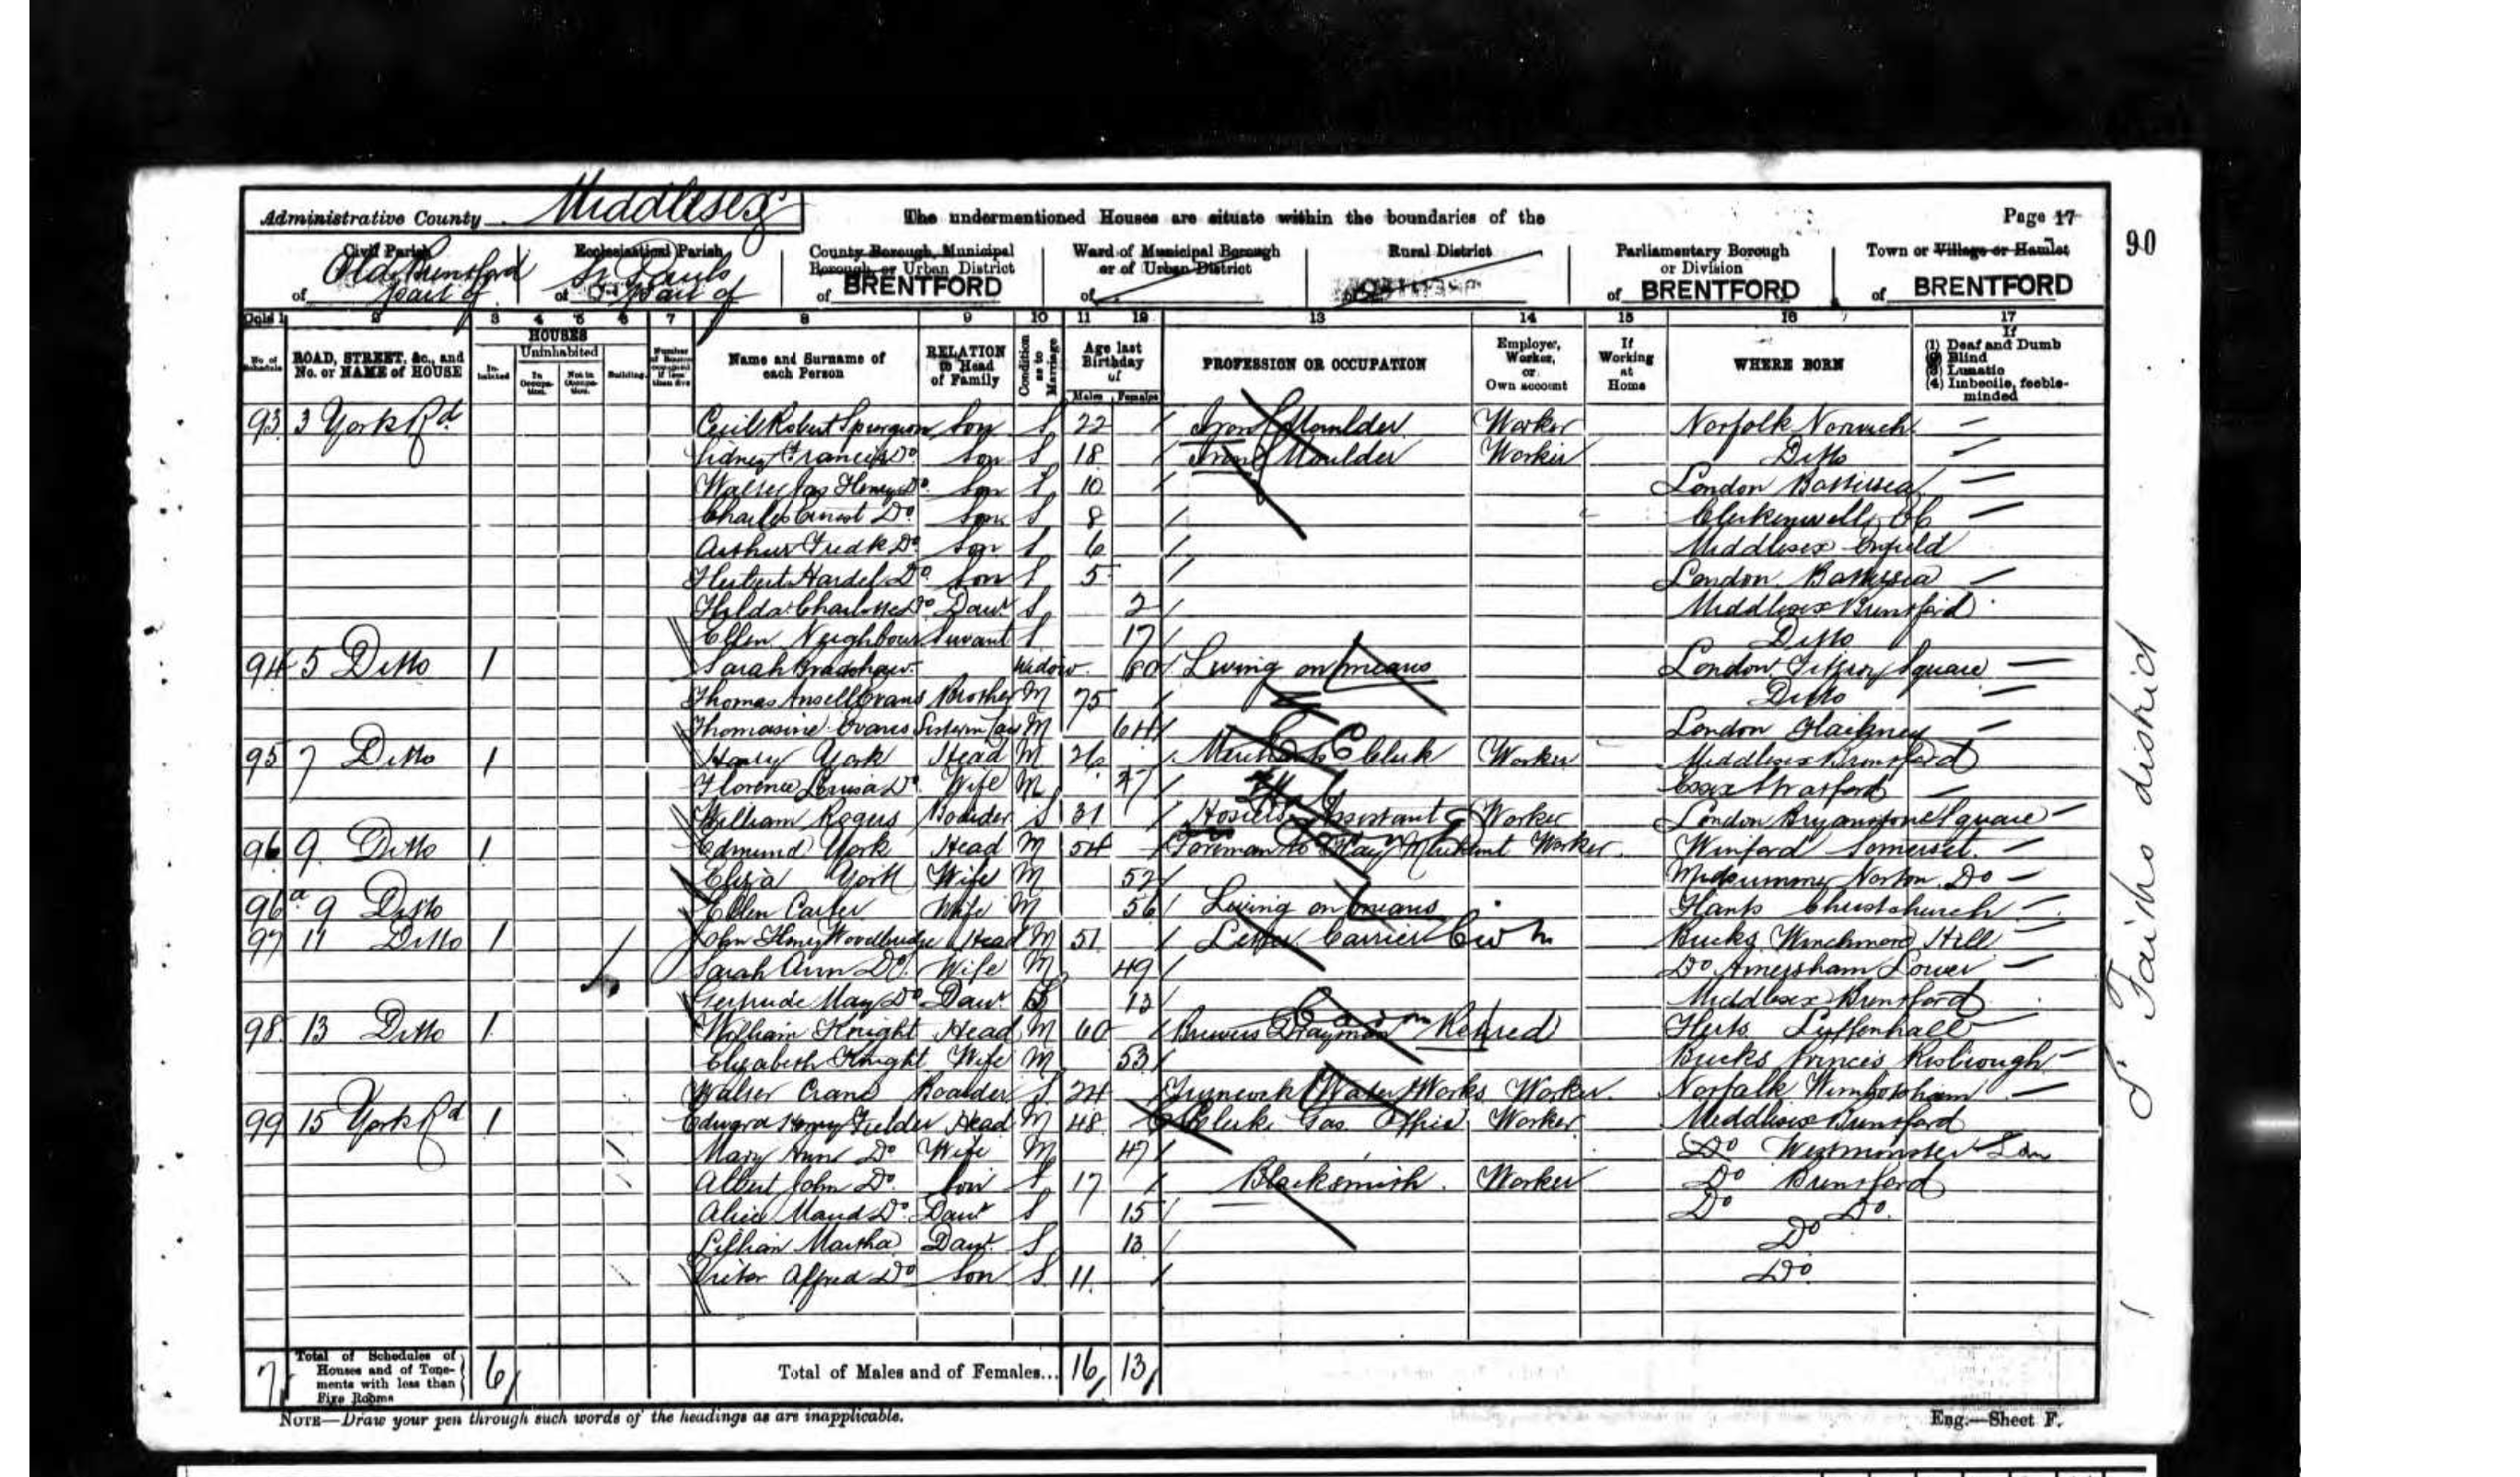 Administrative County Middlesex
The undermentioned Houses are situate within the boundaries of the
Page 17
90
Civil Parish of Old Brentford part of
Ecclesiastical Parish of St Pauls part of
County Borough, Municipal Borough or Urban District of BRENTFORD
Ward of Municipal Borough or of Urban District of
Rural District of
Parliamentary Borough or Division of BRENTFORD
Town or Village or Hamlet of BRENTFORD
Cols 1 2 3 4 5 6 7 8 9 10 11 12 13 14 15 16 17
No. of Schedule
ROAD, STREET, &c., and No. or NAME of HOUSE
HOUSES
Inhabited
Uninhabited
In Occupation.
Not in Occupation.
Building.
Number of Rooms occupied if less than five
Name and Surname of each Person
RELATION to Head of Family
Condition as to Marriage
Age last Birthday of
Males Females
PROFESSION OR OCCUPATION
Employer, Worker, or Own account
If Working at Home
WHERE BORN
If (1) Deaf and Dumb (2) Blind (3) Lunatic (4) Imbecile, feeble-minded
93 3 York Rd Cecil Robert Spurgeon Son S 22 Iron Moulder Worker Norfolk Norwich
Sidney Francis Do Son S 18 Iron Moulder Worker Ditto
Walter Jas Henry Do Son S 10 London Battersea
Charles Ernest Do Son S 8 Clerkenwell
Arthur Fredk Do Son S 6 Middlesex Enfield
Herbert Do Son S 5 London Battersea
Hilda Charlotte Do Daur S 2 Middlesex Brentford
Ellen Neighbour Servant S 17 Ditto
94 5 Ditto 1 Sarah Bradshaw Widow 60 Living on means London Fitzroy Square
Thomas Ansell Evans Brother M 75 Ditto
Thomasine Evans Sister in Law M 64 London Hackney
95 7 Ditto 1 Harry York Head M 26 Clerk Worker Middlesex Brentford
Florence Louisa Do Wife M 27 Essex Stratford
William Rogers Boarder S 31 Hosiers Assistant Worker London Bryanstone Square
96 9 Ditto 1 Edmund York Head M 54 Foreman to Hay Merchant Worker Winford Somerset
Eliza York Wife M 52 Midsummer Norton Do
96a 9 Ditto Ellen Carter Wife M 56 Living on means Hants Christchurch
97 11 Ditto 1 John Henry Woodbridge Head M 51 Letter Carrier Bucks Winchmore Hill
Sarah Ann Do Wife M 49 Do Amersham Lower
Gertrude May Do Daur S 13 Middlesex Brentford
98 13 Ditto 1 William Knight Head M 60 Brewers Drayman Retired Herts Luffenhall
Elizabeth Knight Wife M 53 Bucks Princes Risborough
Walter Crane Boarder S 24 Turncock Water Works Worker Norfolk
99 15 York Rd 1 Edward Henry Fielder Head M 48 Clerk Gas Office Worker Middlesex Brentford
Mary Ann Do Wife M 47 Do Westminster Lon
Albert John Do Son S 17 Blacksmith Worker Do Brentford
Alice Maud Do Daur S 15 Do Do
Lillian Martha Daur S 13 Do
Victor Alfred Do Son S 11 Do
7 Total of Schedules of Houses and of Tenements with less than Five Rooms 6 Total of Males and of Females... 16 13
NOTE—Draw your pen through such words of the headings as are inapplicable.
Eng.—Sheet F.
St Faiths district